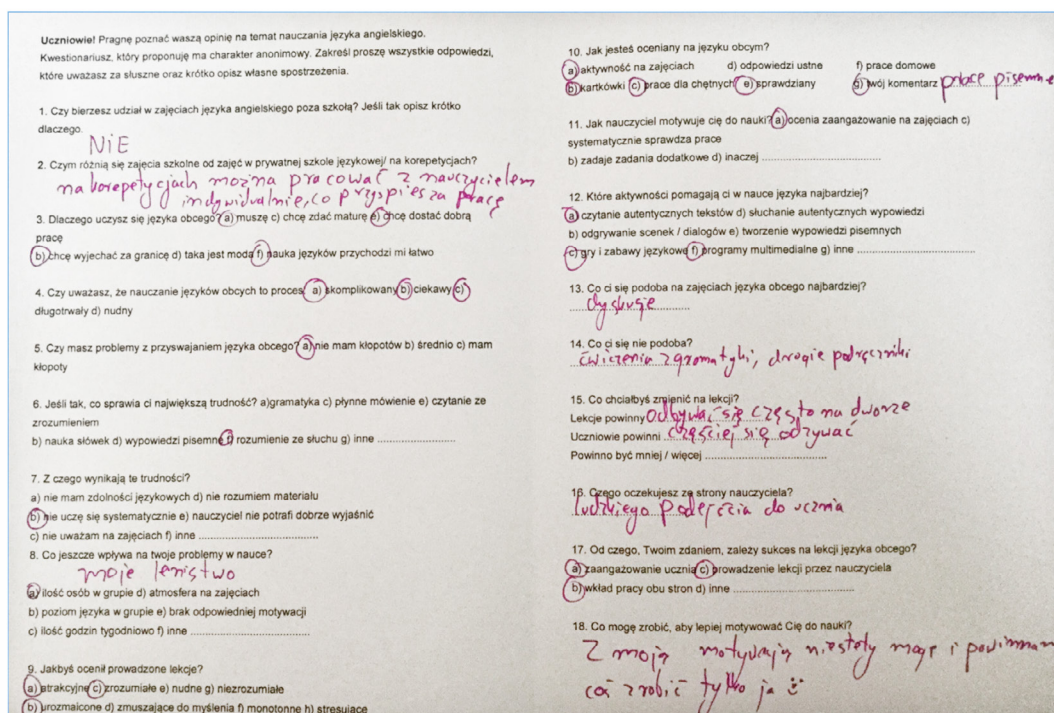 Uczniowie! Pragnę poznać waszą opinię na temat nauczania języka angielskiego.
Kwestionariusz, który proponuję ma charakter anonimowy. Zakreśl proszę wszystkie odpowiedzi,
które uważasz za słuszne oraz krótko opisz własne spostrzeżenia.
1. Czy bierzesz udział w zajęciach języka angielskiego poza szkołą? Jeśli tak opisz krótko
dlaczego.
NIE
2. Czym różnią się zajęcia szkolne od zajęć w prywatnej szkole językowej/ na korepetycjach?
na korepetycjach można pracować z nauczycielem
indywidualnie, co przyspiesza pracę
3. Dlaczego uczysz się języka obcego? a) muszę c) chcę zdać maturę e) chcę dostać dobrą
pracę
b) chcę wyjechać za granicę d) taka jest moda f) nauka języków przychodzi mi łatwo
4. Czy uważasz, że nauczanie języków obcych to proces a) skomplikowany b) ciekawy c)
długotrwały d) nudny
5. Czy masz problemy z przyswajaniem języka obcego? a) nie mam kłopotów b) średnio c) mam
kłopoty
6. Jeśli tak, co sprawia ci największą trudność? a)gramatyka c) płynne mówienie e) czytanie ze
zrozumieniem
b) nauka słówek d) wypowiedzi pisemne f) rozumienie ze słuchu g) inne ..........................
7. Z czego wynikają te trudności?
a) nie mam zdolności językowych d) nie rozumiem materiału
b) nie uczę się systematycznie e) nauczyciel nie potrafi dobrze wyjaśnić
c) nie uważam na zajęciach f) inne ........................................
8. Co jeszcze wpływa na twoje problemy w nauce?
moje lenistwo
a) ilość osób w grupie d) atmosfera na zajęciach
b) poziom języka w grupie e) brak odpowiedniej motywacji
c) ilość godzin tygodniowo f) inne ........................................
9. Jakbyś ocenił prowadzone lekcje?
a) atrakcyjne c) zrozumiałe e) nudne g) niezrozumiałe
b) urozmaicone d) zmuszające do myślenia f) monotonne h) stresujące
10. Jak jesteś oceniany na języku obcym?
a) aktywność na zajęciach d) odpowiedzi ustne f) prace domowe
b) kartkówki c) prace dla chętnych e) sprawdziany g) twój komentarz prace pisemne
11. Jak nauczyciel motywuje cię do nauki? a) ocenia zaangażowanie na zajęciach c)
systematycznie sprawdza prace
b) zadaje zadania dodatkowe d) inaczej ........................................
12. Które aktywności pomagają ci w nauce języka najbardziej?
a) czytanie autentycznych tekstów d) słuchanie autentycznych wypowiedzi
b) odgrywanie scenek / dialogów e) tworzenie wypowiedzi pisemnych
c) gry i zabawy językowe f) programy multimedialne g) inne ........................................
13. Co ci się podoba na zajęciach języka obcego najbardziej?
dyskusje
14. Co ci się nie podoba?
ćwiczenia z gramatyki, drogie podręczniki
15. Co chciałbyś zmienić na lekcji?
Lekcje powinny odbywać się często na dworze
Uczniowie powinni częściej się odzywać
Powinno być mniej / więcej ........................................
16. Czego oczekujesz ze strony nauczyciela?
ludzkiego podejścia do ucznia
17. Od czego, Twoim zdaniem, zależy sukces na lekcji języka obcego?
a) zaangażowanie ucznia c) prowadzenie lekcji przez nauczyciela
b) wkład pracy obu stron d) inne ........................................
18. Co mogę zrobić, aby lepiej motywować Cię do nauki?
Z moją motywacją niestety mogę i powinnam
coś zrobić tylko ja